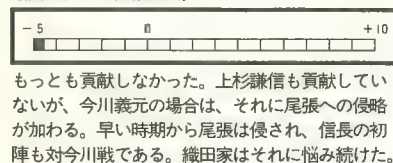 －5 0 ＋10
もっとも貢献しなかった。上杉謙信も貢献してい
ないが、今川義元の場合は、それに尾張への侵略
が加わる。早い時期から尾張は侵され、信長の初
陣も対今川戦である。織田家はそれに悩み続けた。